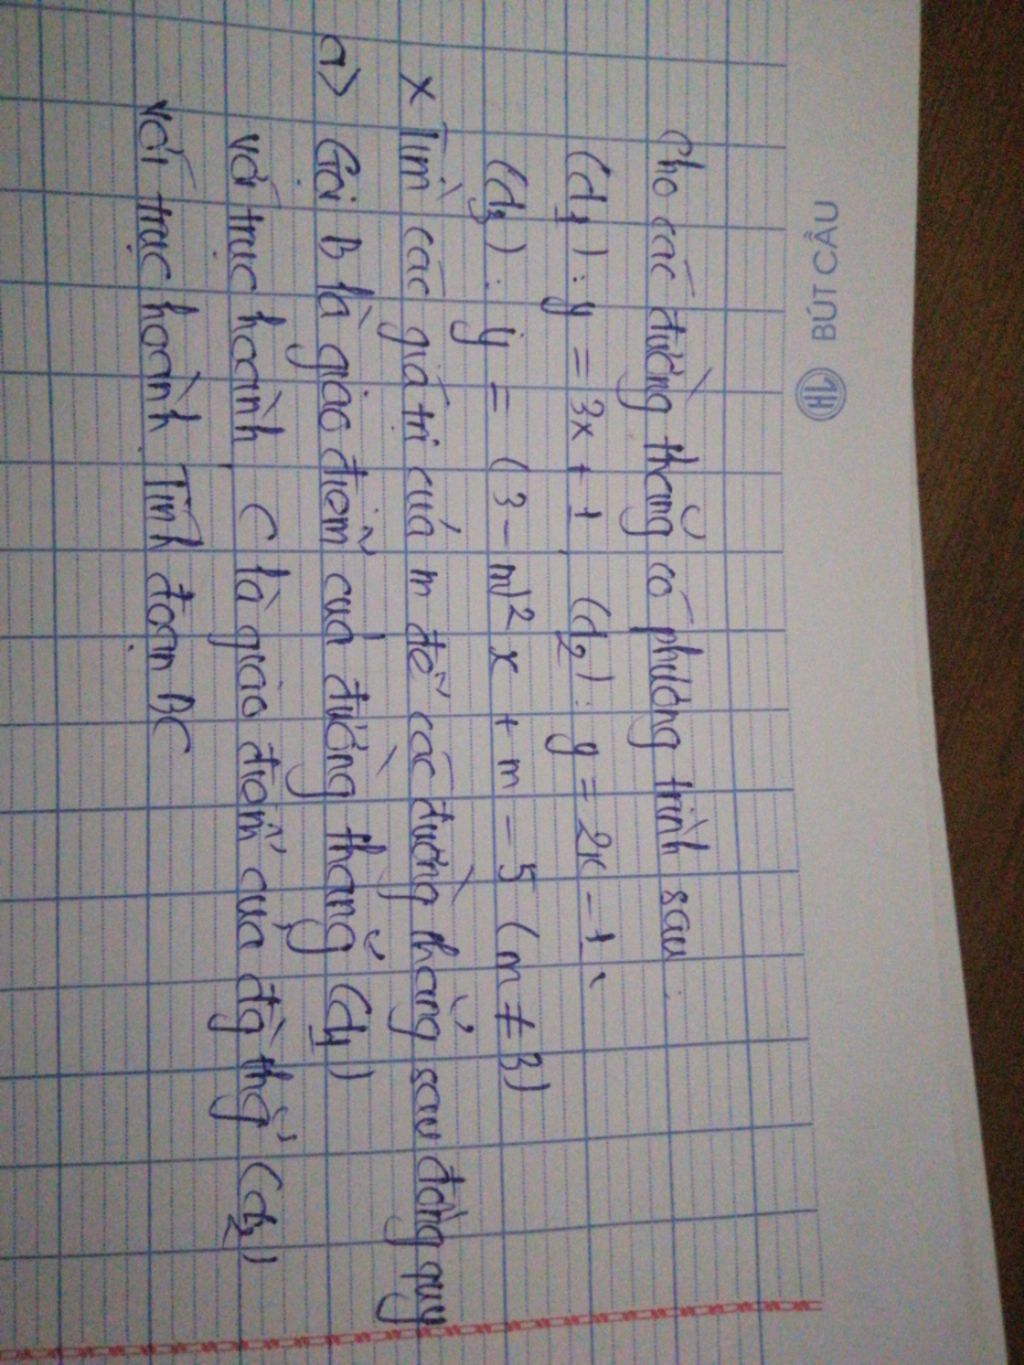 BÚT CẦU
Cho các đường thẳng có phương trình sau:
(d1): y = 3x + 1, (d2): y = 2x - 1,
(d3): y = (3 - m)² x + m - 5 (m ≠ 3)
x Tìm các giá trị của m để các đường thẳng sau đồng quy
a> Gọi B là giao điểm của đường thẳng (d1)
với trục hoành, C là giao điểm của đg thg (d2)
với trục hoành. Tính đoạn BC